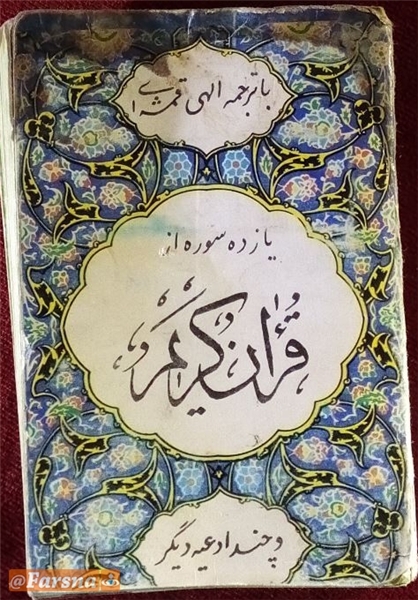 با ترجمه الهی قمشه ای
یازده سوره از
قرآن کریم
و چند ادعیه دیگر
@Farsna